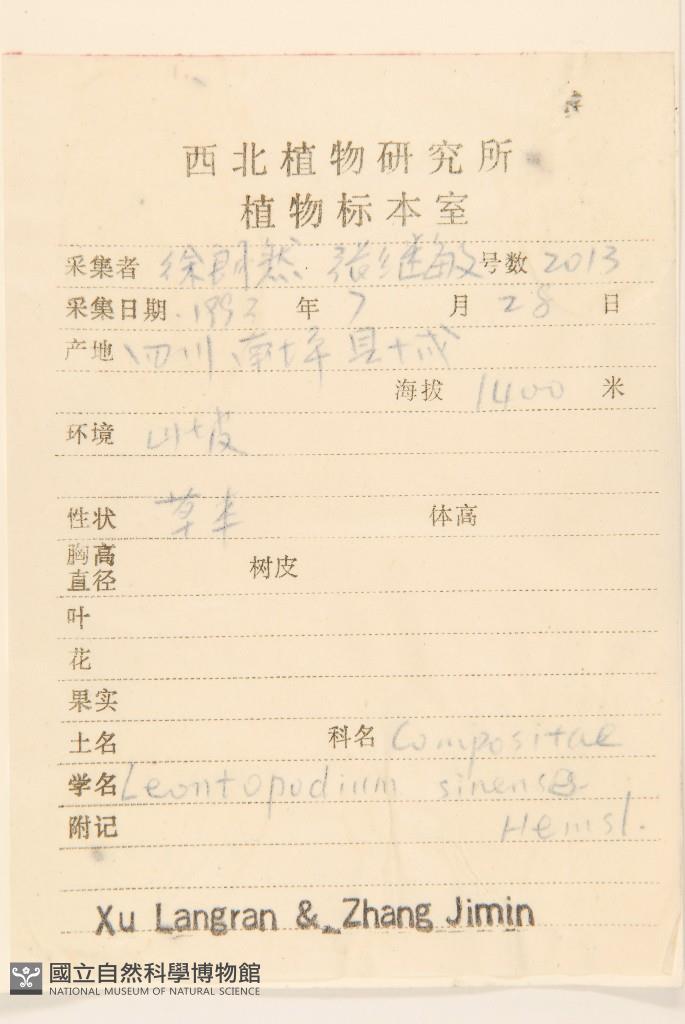 西北植物研究所
植物标本室
采集者 徐朗然 张继敏 号数 2013
采集日期 1992 年 7 月 28 日
产地 四川南坪县城
海拔 1400 米
环境 山坡
性状 草本 体高
胸高直径 树皮
叶
花
果实
土名 科名 Compositae
学名 Leontopodium sinense
附记 Hemsl.
Xu Langran & Zhang Jimin
國立自然科學博物館
NATIONAL MUSEUM OF NATURAL SCIENCE